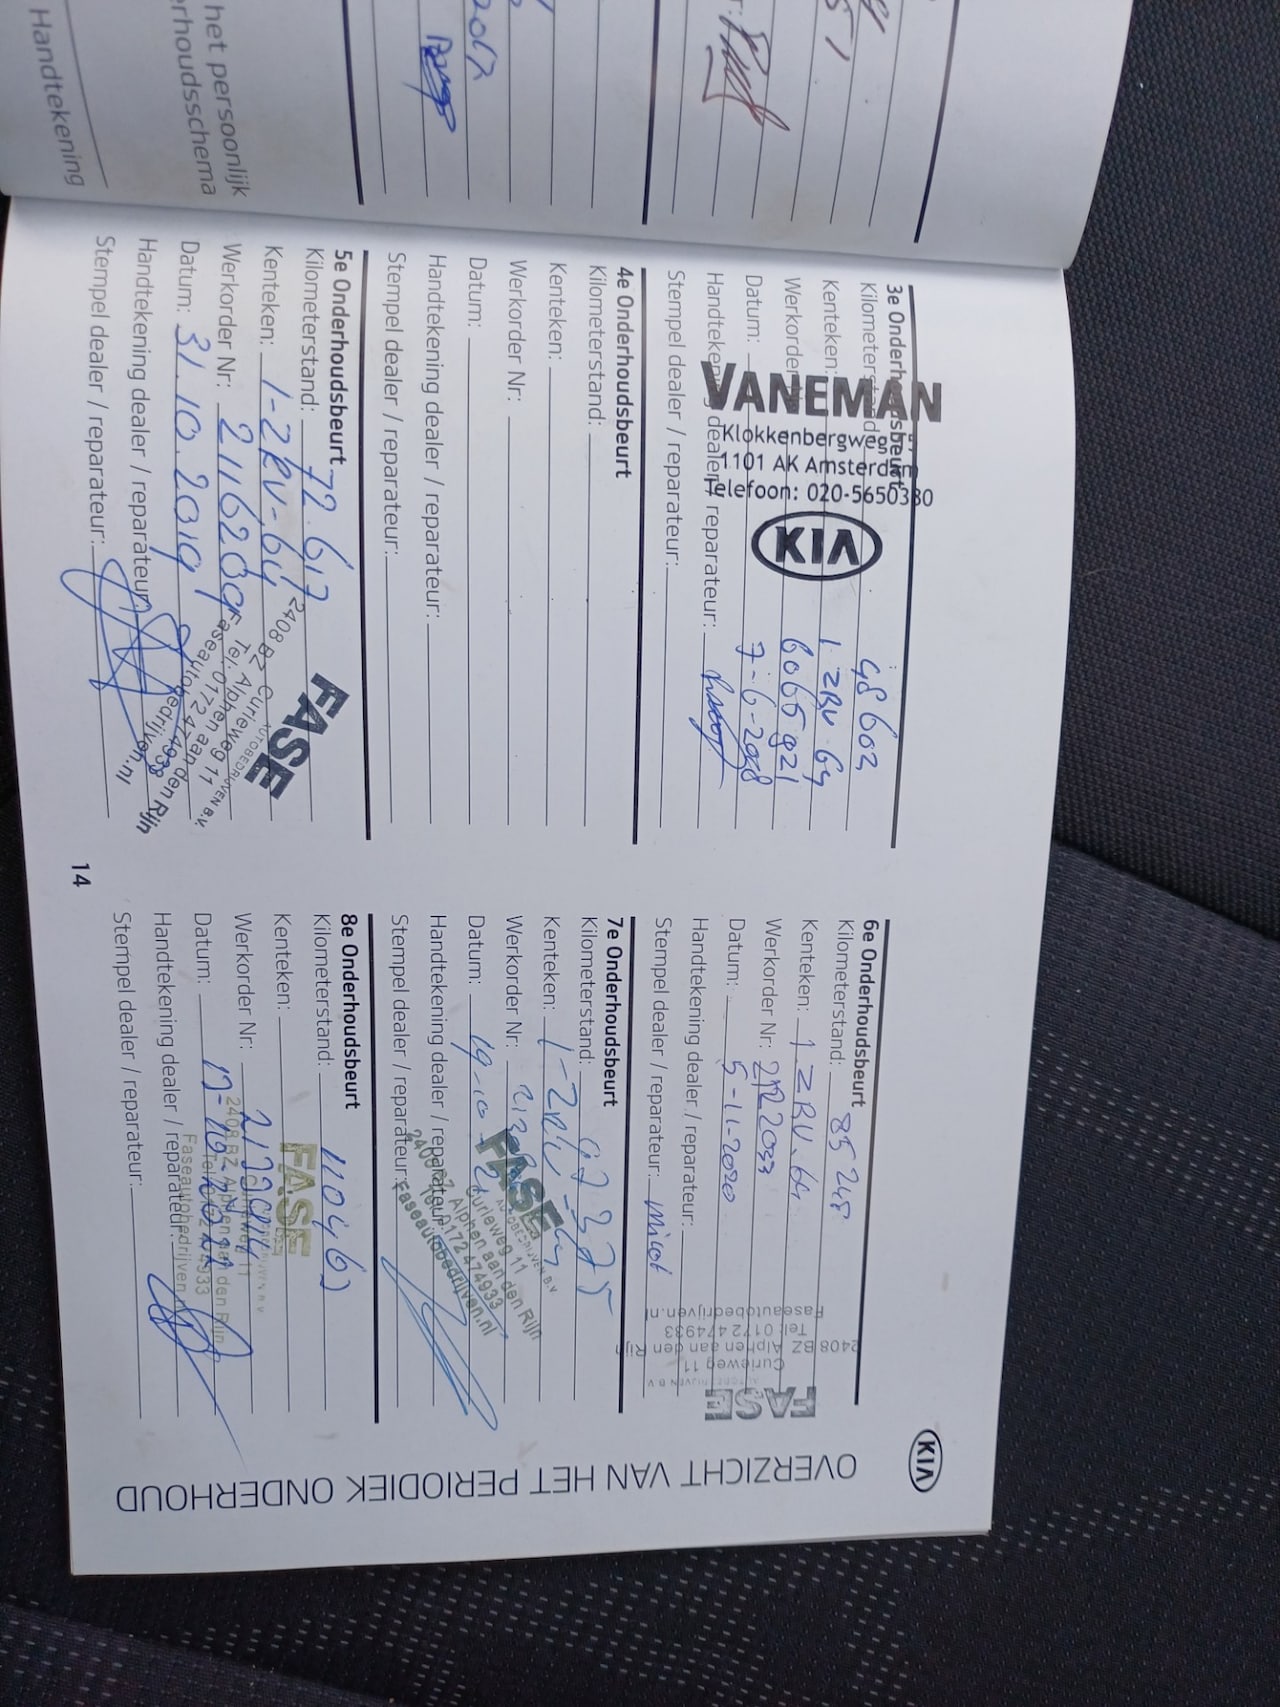 het persoonlijk
erhoudsschema
Handtekening
KIA
OVERZICHT VAN HET PERIODIEK ONDERHOUD
3e Onderhoudsbeurt
Kilometerstand: 48 602
Kenteken: 1 ZBV 64
Werkorder 6065921
Datum: 7-6-2018
Handtekening dealer / reparateur:
Stempel dealer / reparateur:
VANEMAN
Klokkenbergweg
1101 AK Amsterdam
Telefoon: 020-5650380
KIA
4e Onderhoudsbeurt
Kilometerstand:
Kenteken:
Werkorder Nr:
Datum:
Handtekening dealer / reparateur:
Stempel dealer / reparateur:
5e Onderhoudsbeurt
Kilometerstand: 72.617
Kenteken: 1-ZRV-64
Werkorder Nr:
Datum: 31.10.2019
Handtekening dealer / reparateur:
Stempel dealer / reparateur:
FASE
AUTOBEDRIJVEN B.V.
Curieweg 11
2408 BZ Alphen aan den Rijn
Tel. 0172 474933
Faseautobedrijven.nl
14
6e Onderhoudsbeurt
Kilometerstand: 85 248
Kenteken: 1-ZRV.64
Werkorder Nr: 2122033
Datum: 5-11-2020
Handtekening dealer / reparateur:
Stempel dealer / reparateur:
FASE
AUTOBEDRIJVEN B.V.
Curieweg 11
2408 BZ Alphen aan den Rijn
Tel: 0172 474933
Faseautobedrijven.nl
7e Onderhoudsbeurt
Kilometerstand: 97-375
Kenteken:
Werkorder Nr:
Datum: 19-10-21
Handtekening dealer / reparateur:
Stempel dealer / reparateur:
FASE
AUTOBEDRIJVEN B.V.
Curieweg 11
2408 BZ Alphen aan den Rijn
Tel. 0172 474933
Faseautobedrijven.nl
8e Onderhoudsbeurt
Kilometerstand: 110462
Kenteken:
Werkorder Nr:
Datum:
Handtekening dealer / reparateur:
Stempel dealer / reparateur:
FASE
Curieweg 11
2408 BZ Alphen aan den Rijn
Tel. 0172 474933
Faseautobedrijven